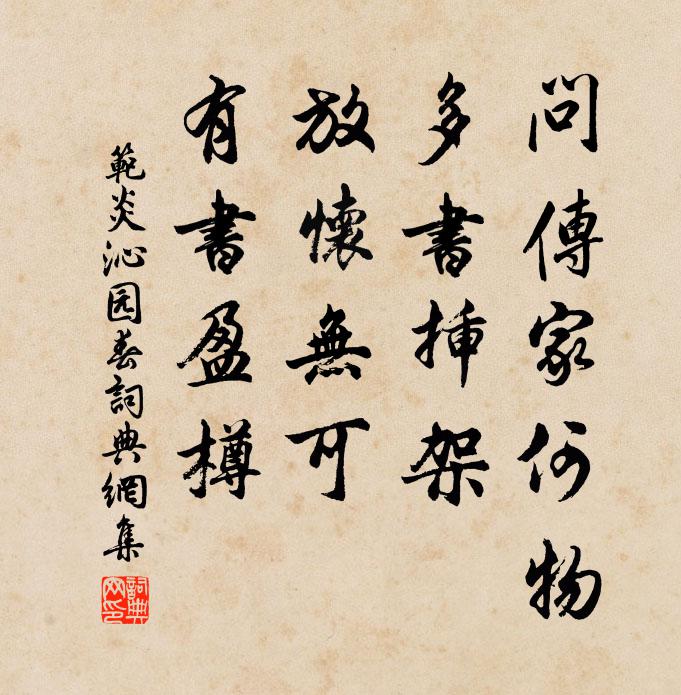 問傳家何物
多書揷架
放懷無可
有書盈樽
範炎沁园春詞典網集
詞典网印